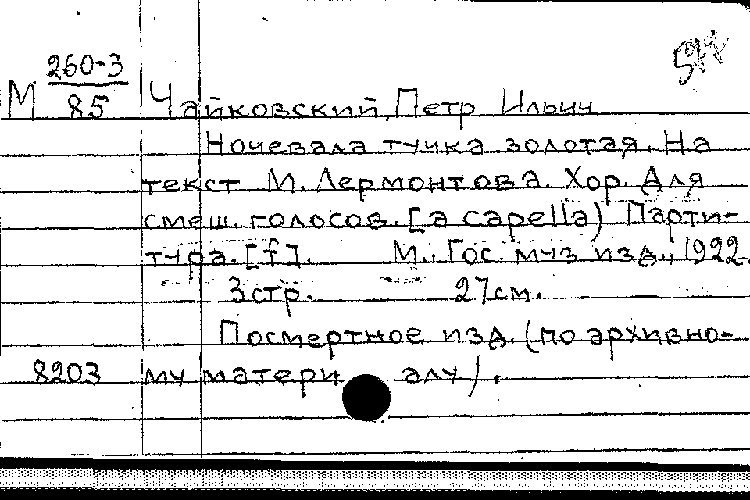 260-3
М 85 Чайковский, Петр Ильич
Ночевала тучка золотая. На
текст М. Лермонтова. Хор. Для
смеш. голосов. [a capella) Парти-
тура. [f]. М. Гос муз изд., 1922.
3стр. 27см.
Посмертное изд. (по архивно-
8203 му матери алу).